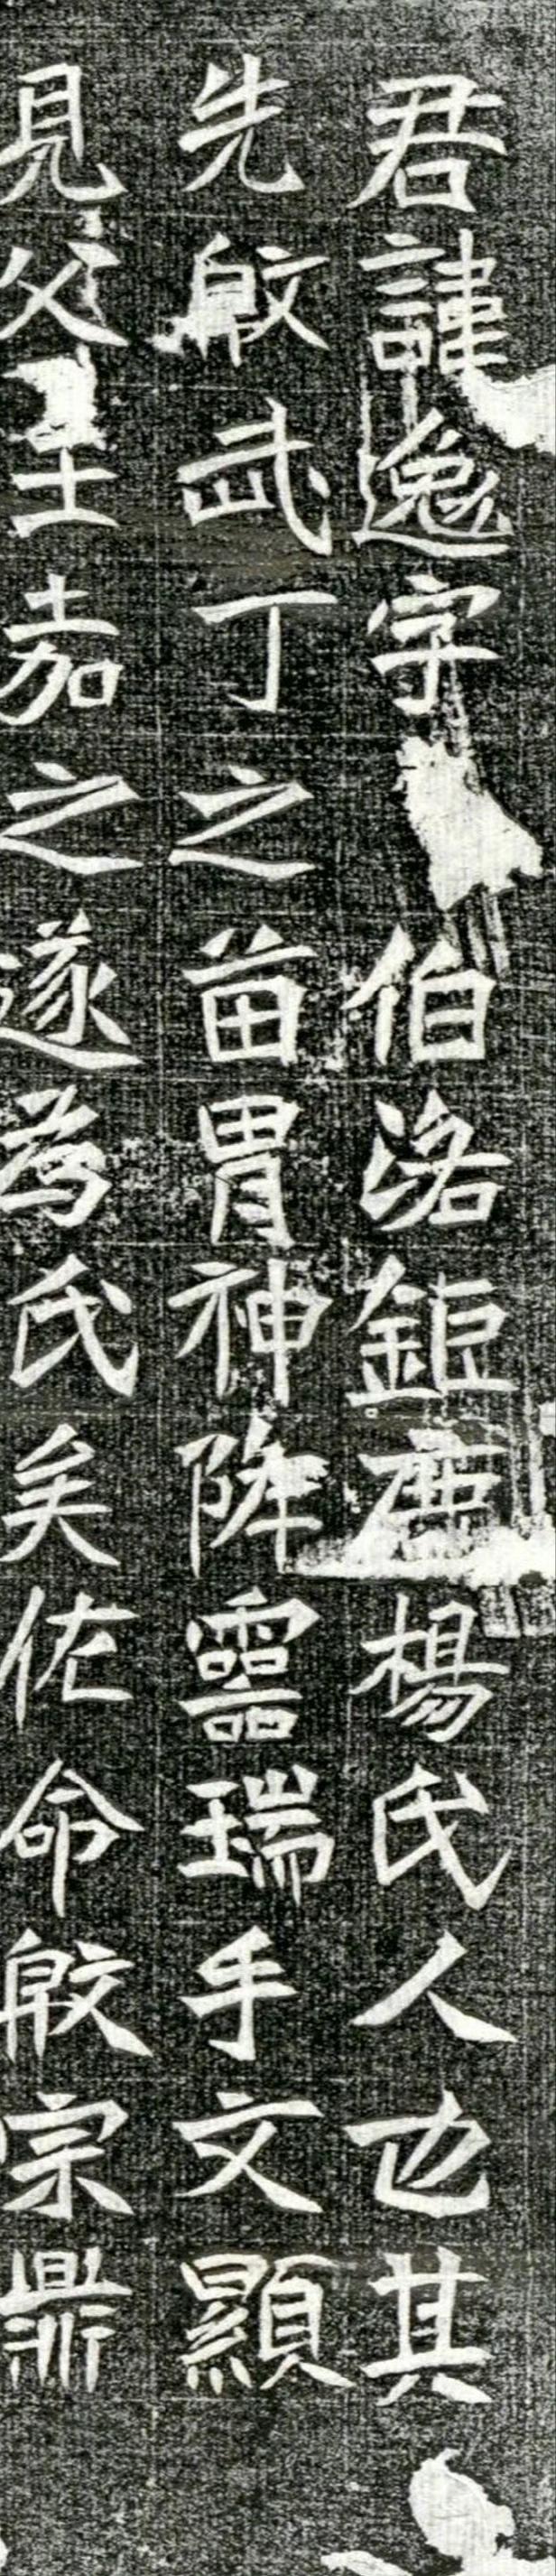 君諱逸字伯洛鉅鹿楊氏人也其
先殷武丁之苗胄神降靈瑞手文顯
見父王嘉之遂為氏矣佐命殷宗鼎